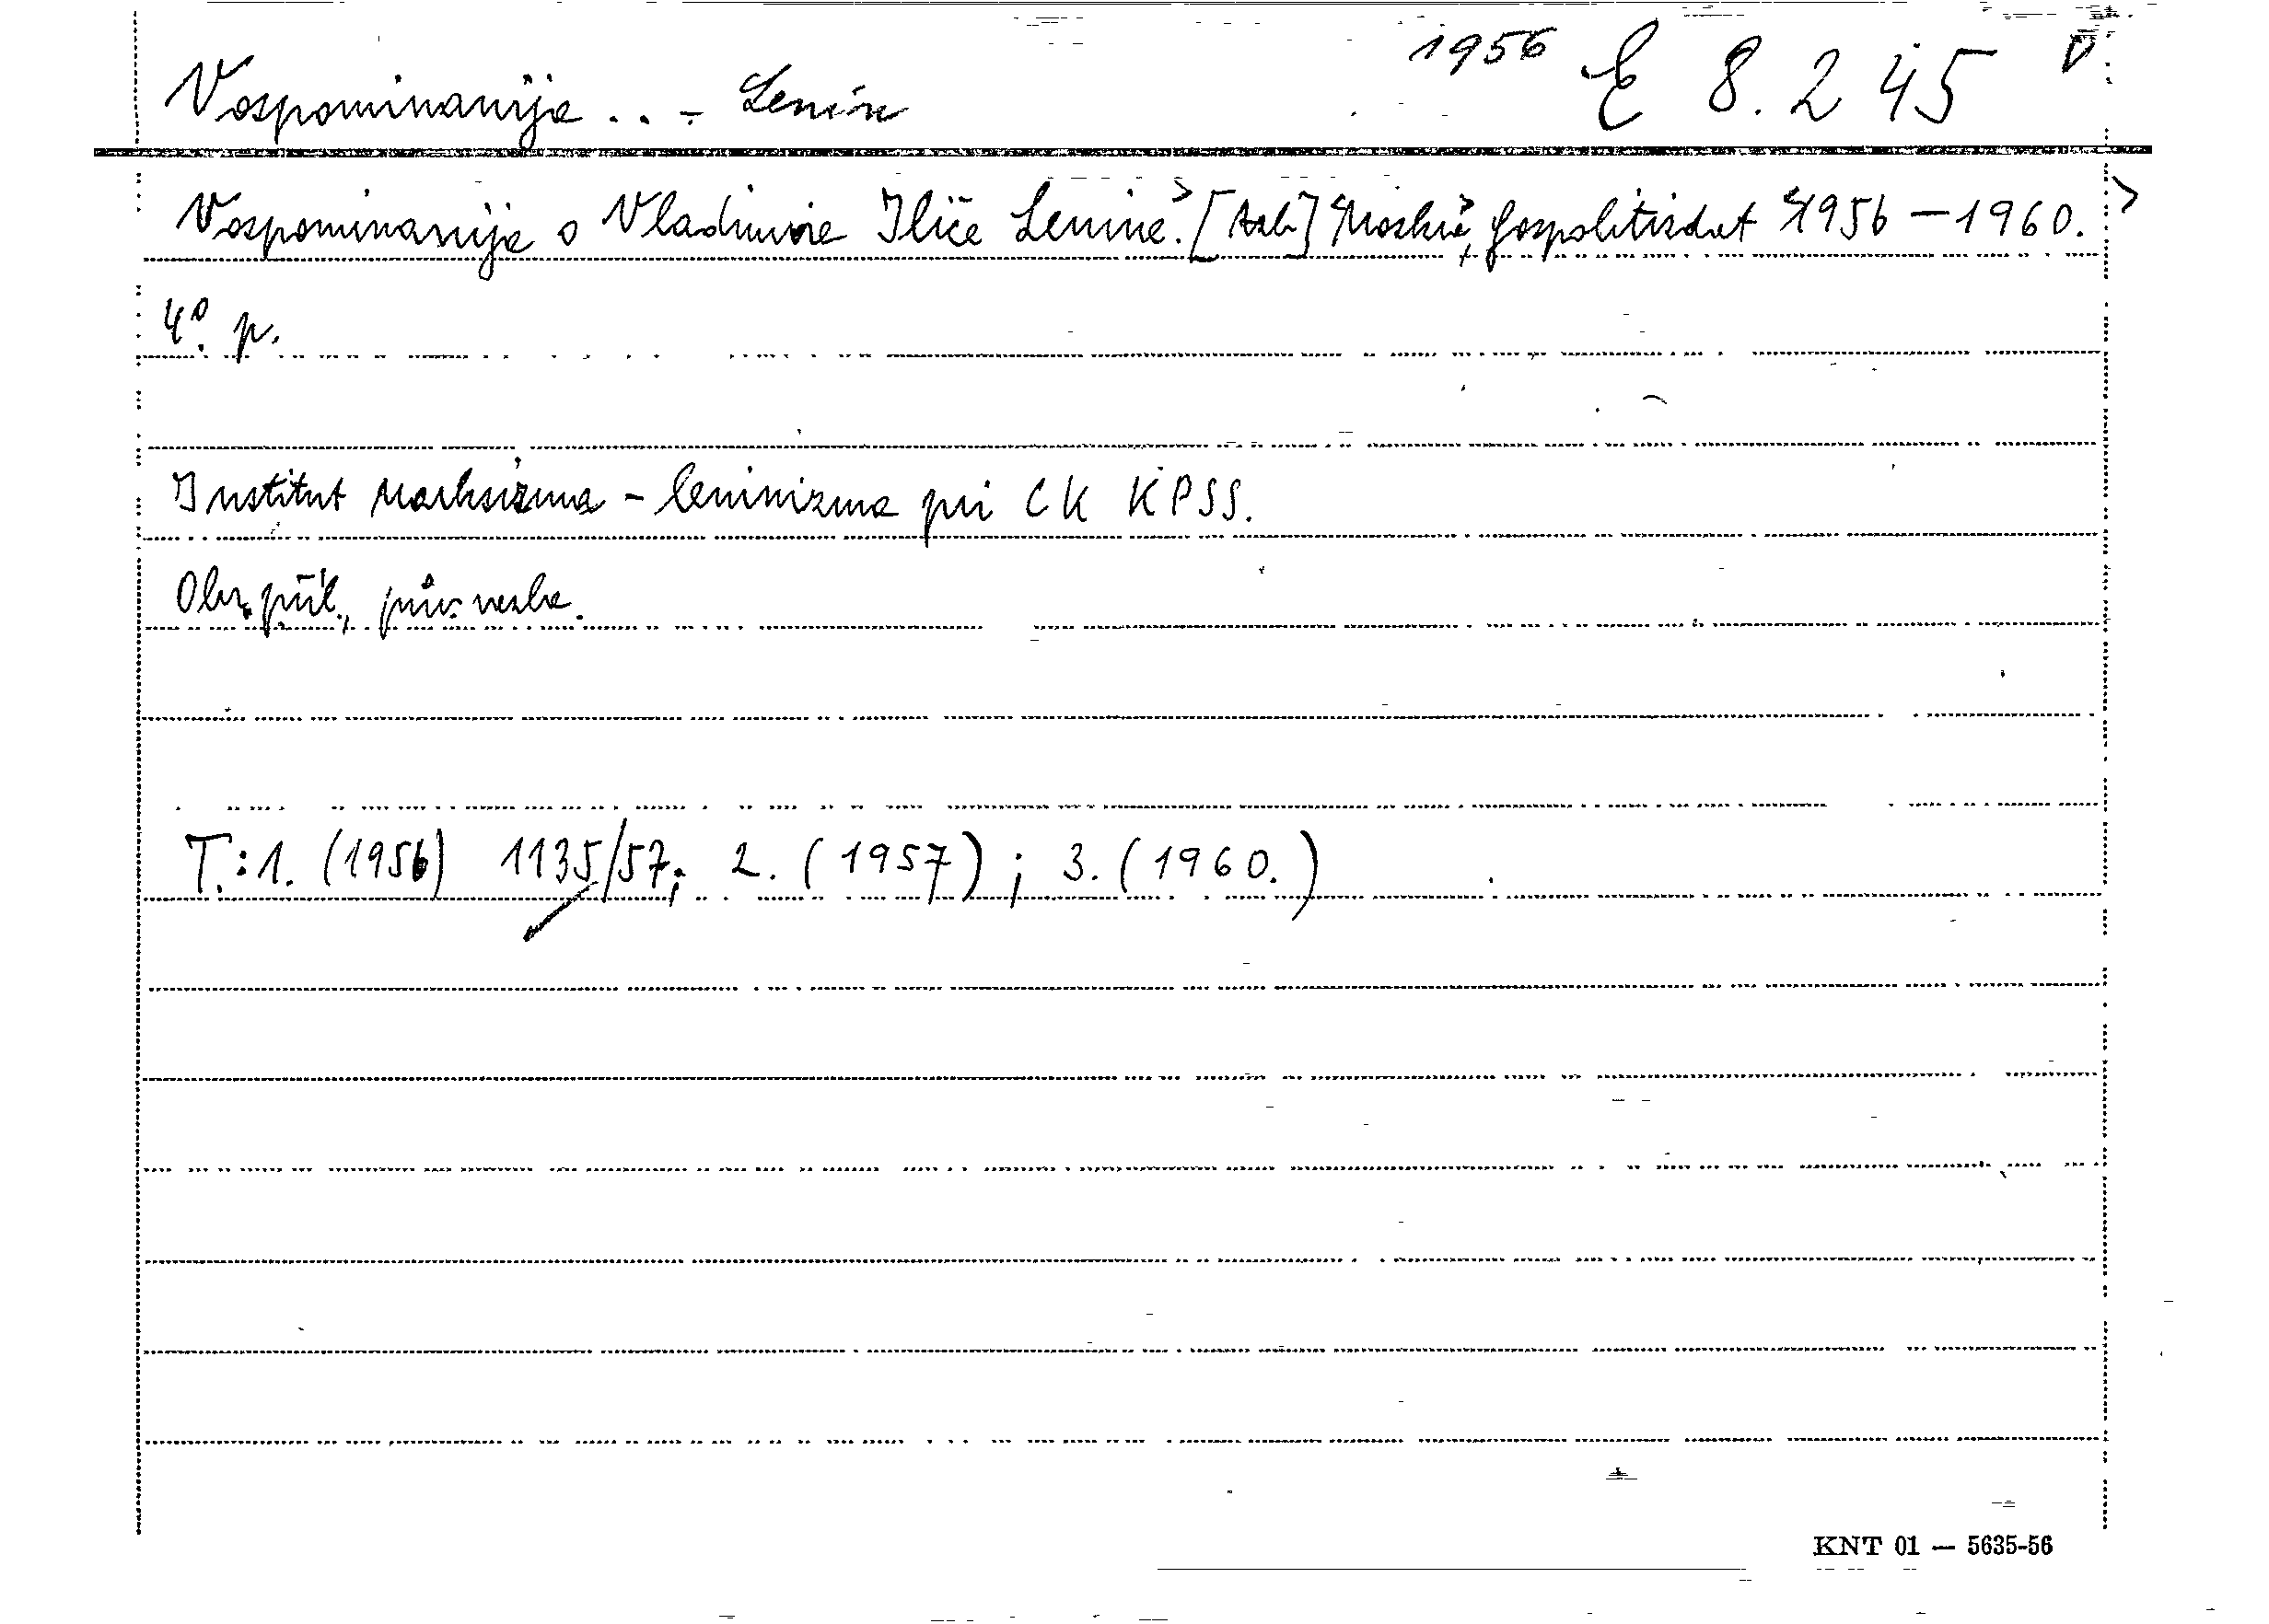 Vospominanija .. - Lenin 1956 E 8.245
Vospominanija o Vladimire Iliče Lenine. [Azb.] Moskva, Gospolitizdat 1956 — 1960.
4° p.
Institut Marksizma - leninizma pri CK KPSS.
Obr. příl., pův. vazba.
T.: 1. (1956) 1135/57; 2. (1957); 3. (1960.)
KNT 01 — 5635-56